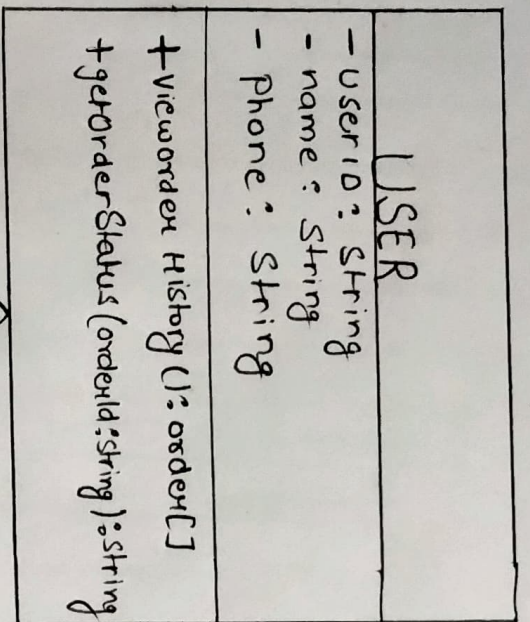 USER
- userID : String
- name : String
- Phone : String
+ vieworder History () : order[]
+ getOrderStatus (orderId : string) : String